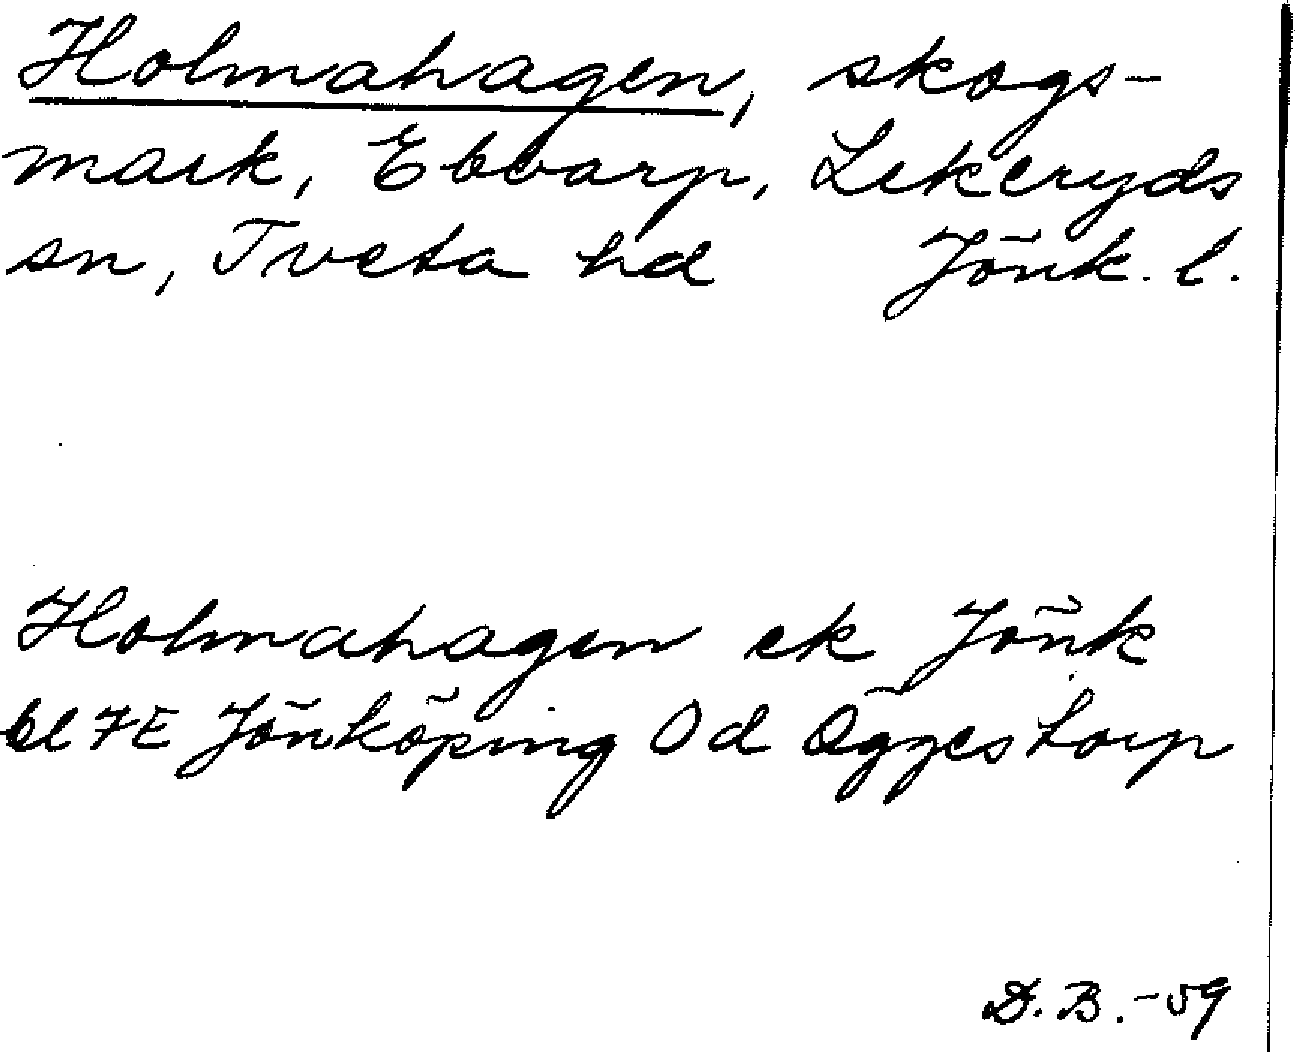 Holmahagen, skogs-
mark, Ebbarp, Lekeryds
sn, Tveta hd Jönk. l.
Holmahagen ek Jönk
bl 7E Jönköping Od Öggestorp
D.B.-59